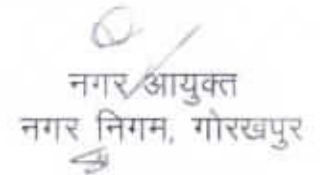 नगर आयुक्त
नगर निगम, गोरखपुर